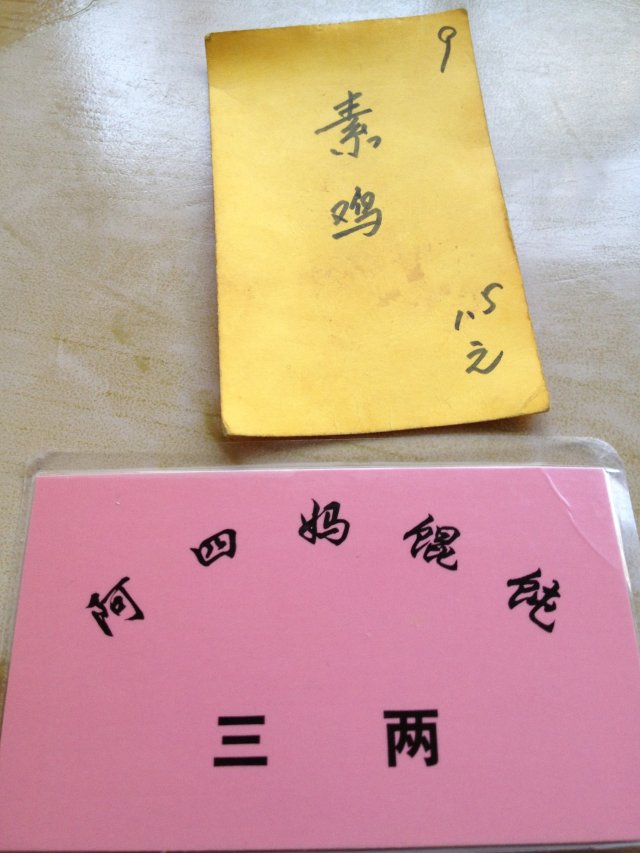 9
素鸡
1.5
元
阿四妈馄饨
三两